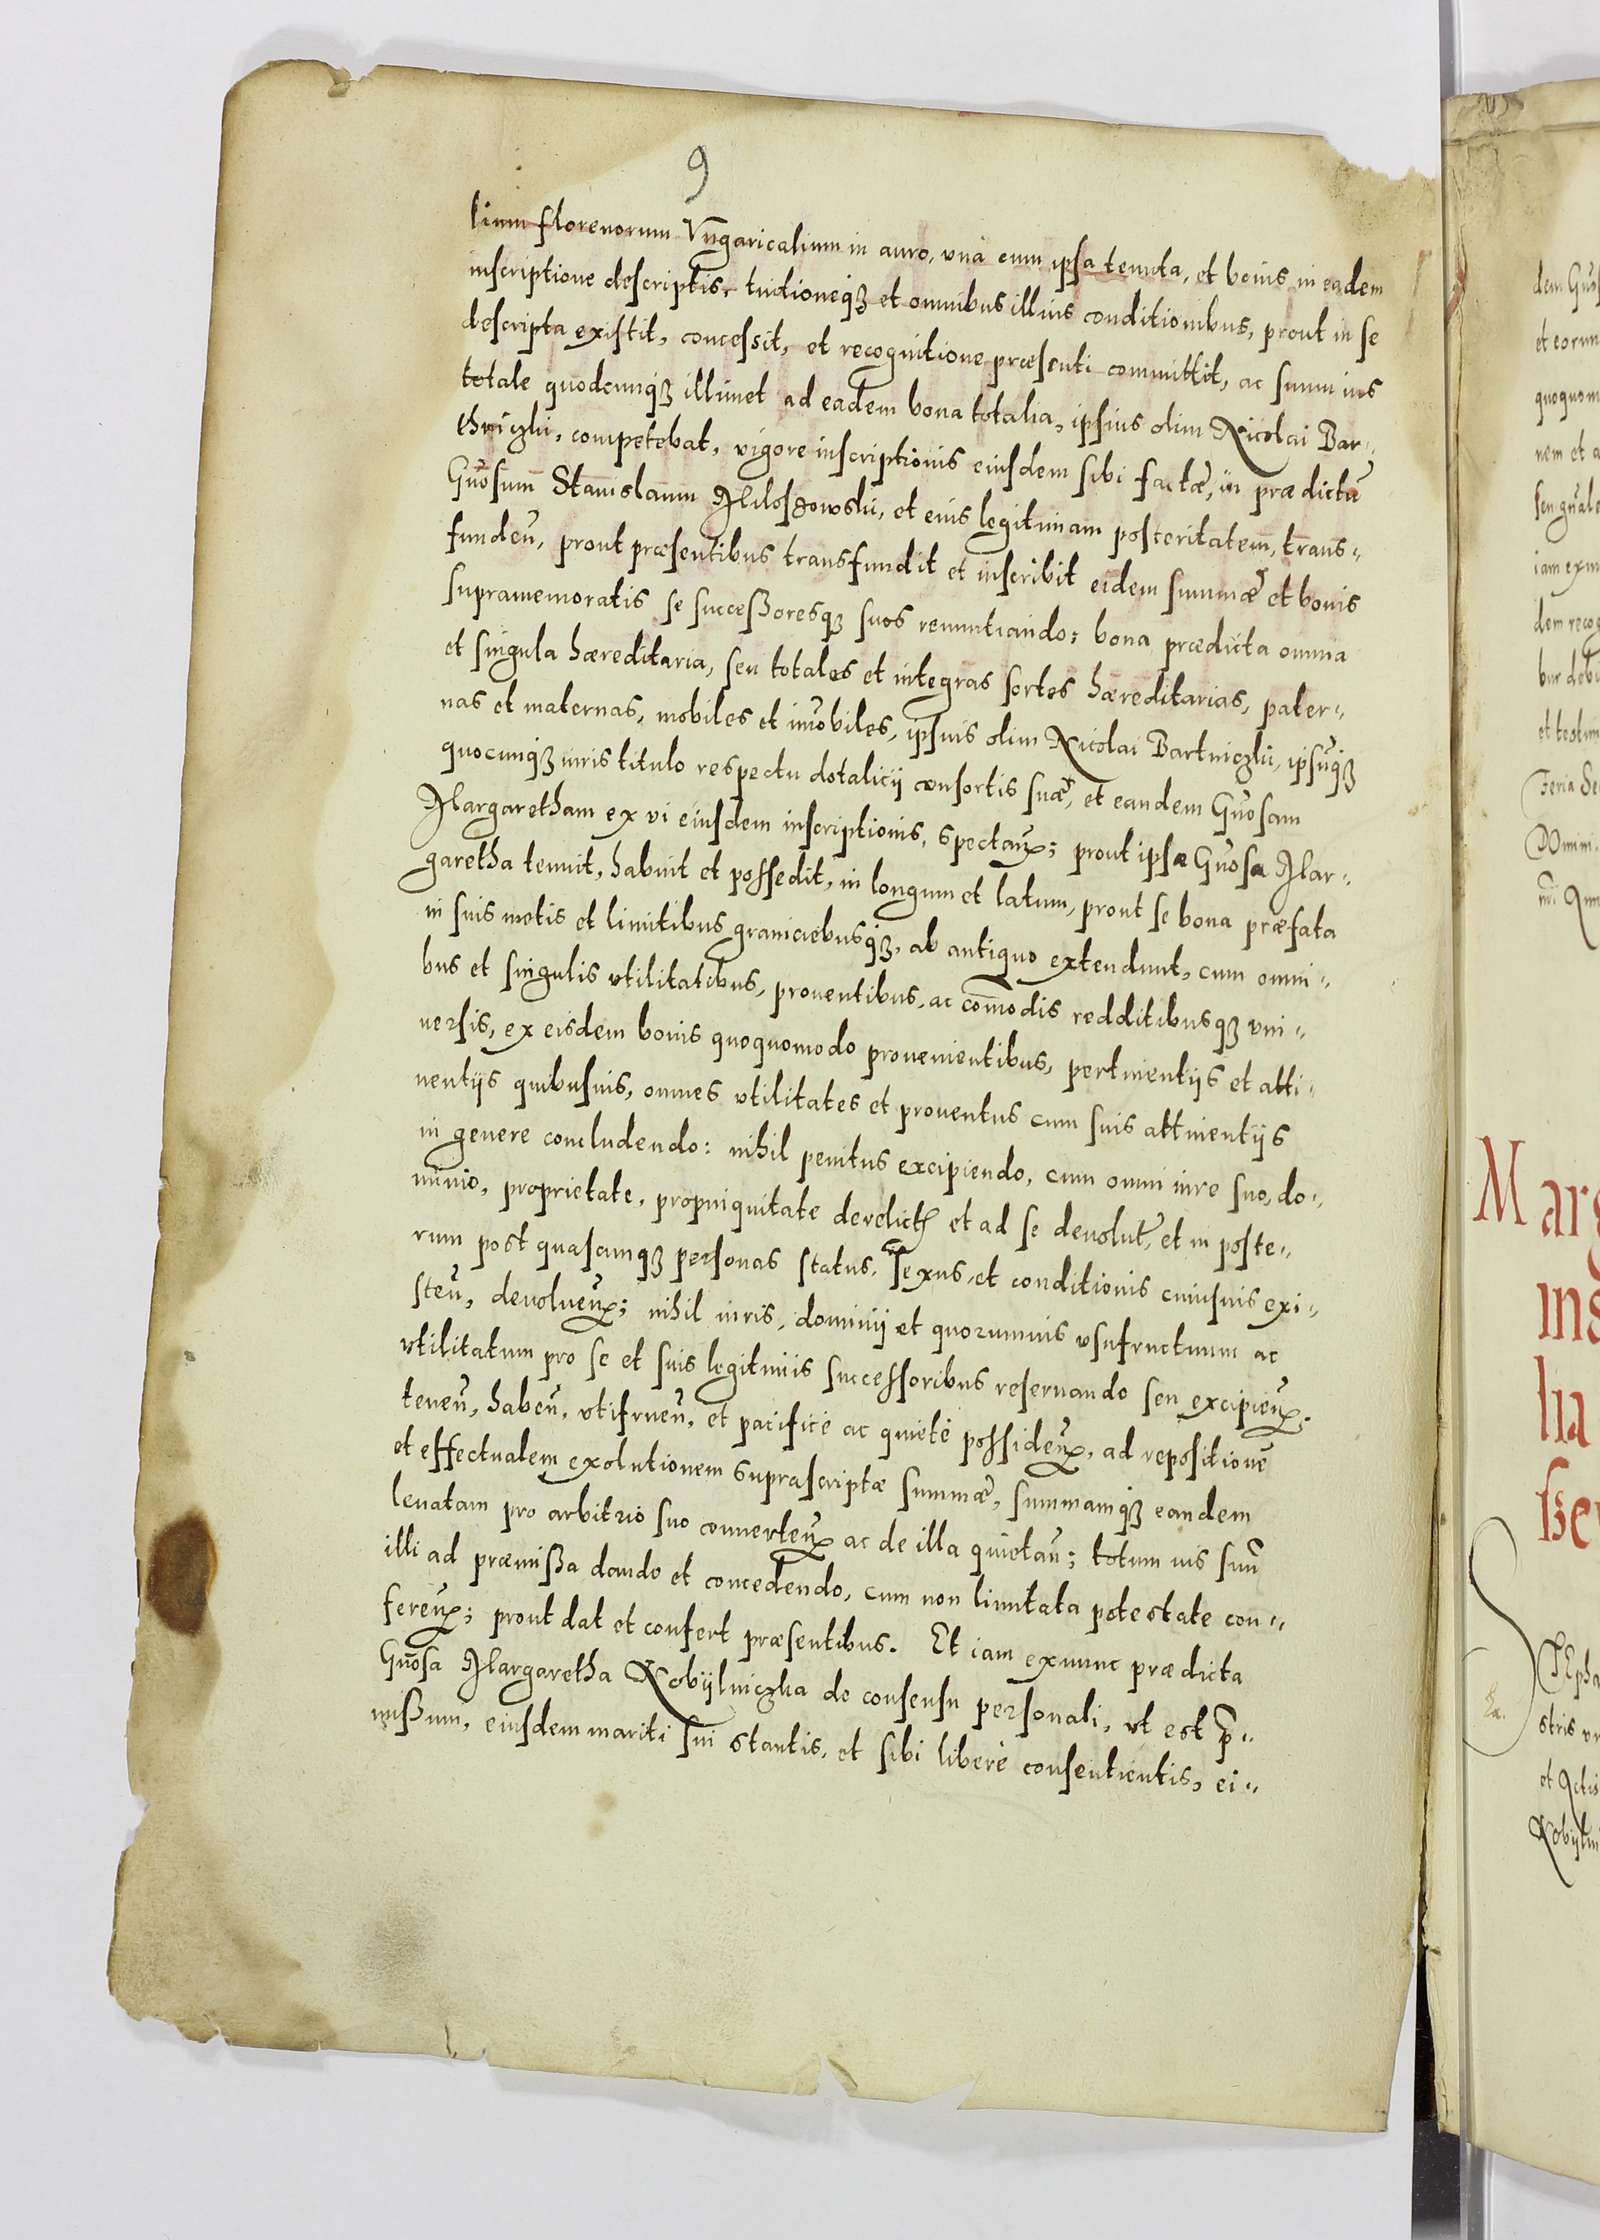 9
lium florenorum Vngaricalium in auro, vnà cum ipsa tenuta, et bonis in eadem
inscriptione descriptis, tuitioneqз et omnibus illius conditionibus, prout in se
descripta existit, concessit, et recognitione præsenti committit, ac suum ius
totale quodcunqз illimet ad eadem bona totalia, ipsius olim Nicolai Bar¬
thniczki, competebat, vigore inscriptionis eiusdem sibi factæ, in prædictū
Gn̄osum Stanislaum Miloszowski, et eius legitimam posteritatem, trans¬
funden̄, prout præsentibus transfundit et inscribit eidem summæ et bonis
supramemoratis se succeßoresqз suos renuntiando: bona prædicta omnia
et singula hæreditaria, seu totales et integras sortes hæreditarias, pater¬
nas et maternas, mobiles et im̄obiles, ipsius olim Nicolai Bartniczki, ipsūqз
quocunqз iuris titulo respectu dotalicij consortis suæ, et eandem Gn̄osam
Margaretham ex vi eiusdem inscriptionis, spectan̄; prout ipsa Gn̄osa Mar¬
garetha tenuit, habuit et possedit, in longum et latum, prout se bona præfata
in suis metis et limitibus graniciebusqз, ab antiquo extendunt, cum omni¬
bus et singulis vtilitatibus, prouentibus, ac com̄odis redditibusqз vni¬
uersis, ex eisdem bonis quoquomodo prouenientibus, pertinentijs et atti¬
nentijs quibusuis, omnes vtilitates et prouentus cum suis attinentijs
in genere concludendo: nihil penitus excipiendo, cum omni iure suo, do¬
minio, proprietate, propinquitate derelict et ad se deuolut, et in poste¬
rum post quascunqз personas status, sexus, et conditionis cuiusuis exi¬
sten̄, deuoluen̄; nihil iuris, dominij et quorumuis vsufructuum ac
vtilitatum pro se et suis legitimis successoribus reseruando seu excipien̄;
tenen̄, haben̄, vtifruen̄, et pacificè ac quietè possiden̄, ad repositionē
et effectualem exolutionem suprascriptæ summæ, summamqз eandem
leuatam pro arbitrio suo conuerten̄ ac de illa quietan̄; totum ius suū
illi ad præmißa dando et concedendo, cum non limitata potestate con¬
feren̄; prout dat et confert præsentibus. Et iam exnunc prædicta
Gn̄osa Margaretha Kobijlniczka de consensu personali, vt est p̄¬
mißum, eiusdem mariti sui stantis, et sibi liberè consentientis, ei¬
et eorum
nem et a
iam exn
dem recog
Feria Se
Domini.
Marg
ins
lia
stris vr
et Actis
Kobijln